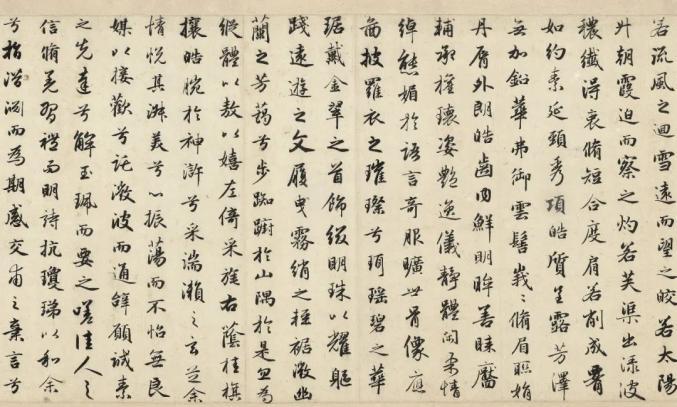 若流風之迴雪遠而望之皎若太陽
升朝霞迫而察之灼若芙渠出淥波
穠纖得衷脩短合度肩若削成腰
如約素延頸秀項皓質呈露芳澤
無加鉛華弗御雲髻峩〻脩眉聯娟
丹脣外朗皓齒内鮮明眸善睞靨
輔承權瓌姿艷逸儀靜體閑柔情
綽態媚於語言奇服曠世骨像應
圖披羅衣之璀璨兮珥瑤碧之華
琚戴金翠之首飾綴明珠以耀軀
踐遠遊之文履曳霧綃之輕裾微幽
蘭之芳藹兮步踟躕於山隅於是忽焉
縱體以敖以嬉左倚采旄右蔭桂旗
攘皓腕於神滸兮采湍瀨之玄芝余
情悅其淑美兮心振蕩而不怡無良
媒以接歡兮託微波而通辭願誠素
之先達兮解玉珮而要之嗟佳人之
信脩羌習禮而明詩抗瓊珶以和余
兮指潛淵而為期感交甫之棄言兮